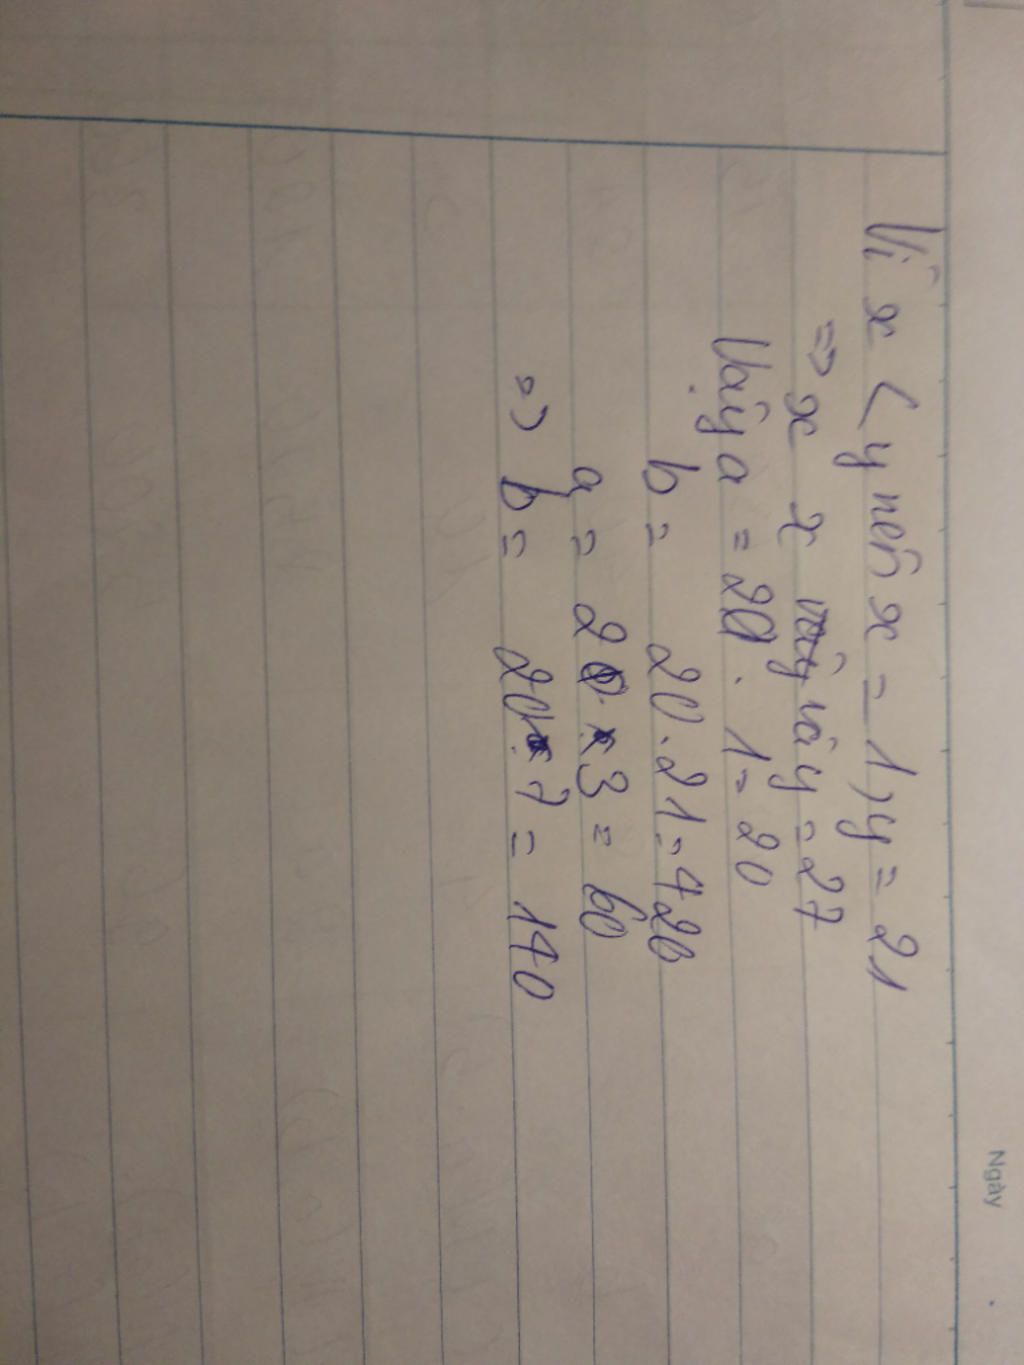 Ngày
Vì x < y nên x = 1, y = 21
=> x x vậy y = 27
Vậy a = 20 . 1 = 20
b = 20 . 21 = 420
a = 20 . 3 = 60
=> b = 20 . 7 = 140